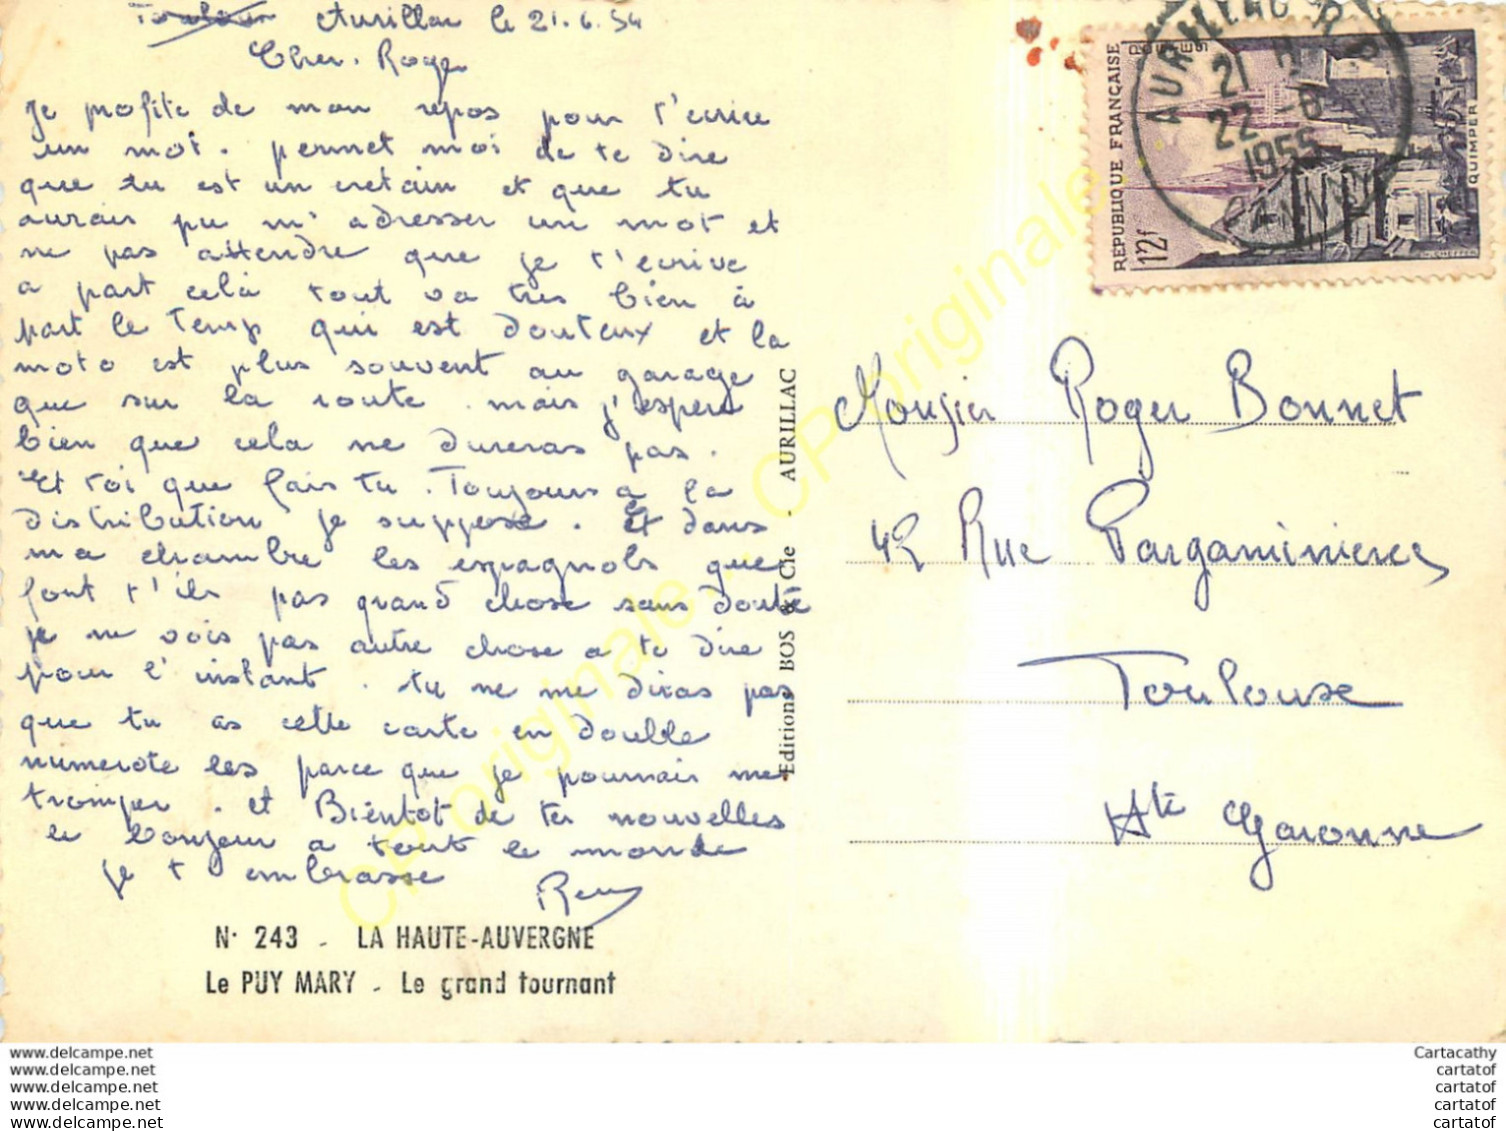 Toulouse Aurillac le 21.6.54
Cher. Roger
Je profite de mon repos pour t'ecrire
un mot. permet moi de te dire
que tu est un cretain et que tu
aurais pu m'adresser un mot et
ne pas attendre que je t'ecrive
a part celà tout va tres bien à
part le Temp qui est douteux et la
moto est plus souvent au garage
que sur la route. mais j'espere
bien que cela ne dureras pas.
Et toi que fais tu. Toujours a la
distribution je suppose. et dans
ma chambre les espagnols que
font t'ils pas grand chose sans doute
je ne vois pas autre chose a te dire
pour l'instant. tu ne me diras pas
que tu as cette carte en double
numerote les parce que je pourrair me
tromper. et Bientot de tes nouvelles
le bonjour a tout le monde
je t embrasse
Remy
N° 243 - LA HAUTE-AUVERGNE
Le PUY MARY - Le grand tournant
Editions BOS & Cie - AURILLAC
REPUBLIQUE FRANÇAISE
POSTES
12f
QUIMPER
AURILLAC R.P
21 H
22 -6
1955
CANTAL
Monsier Roger Bonnet
42 Rue Pargaminieres
Toulouse
Hte Garonne
CPoriginale - CPoriginale - CPoriginale
www.delcampe.net
www.delcampe.net
www.delcampe.net
www.delcampe.net
www.delcampe.net
Cartacathy
cartatof
cartatof
cartatof
cartatof